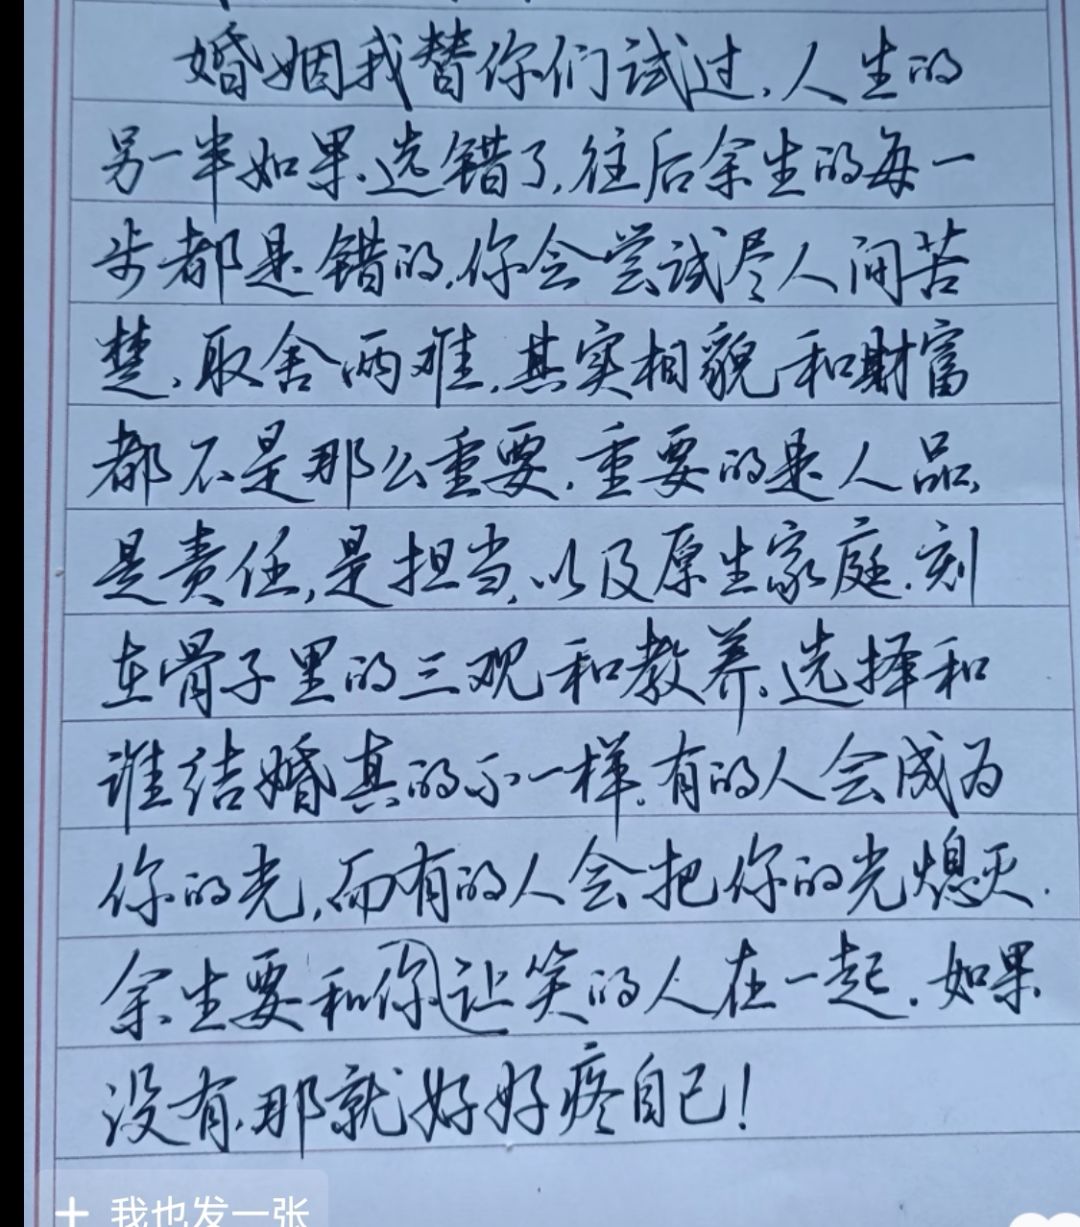 婚姻我替你们试过,人生的
另一半如果选错了,往后余生的每一
步都是错的,你会尝试尽人间苦
楚,取舍两难,其实相貌和财富
都不是那么重要,重要的是人品,
是责任,是担当,以及原生家庭,刻
在骨子里的三观和教养,选择和
谁结婚真的不一样,有的人会成为
你的光,而有的人会把你的光熄灭.
余生要和你让笑的人在一起.如果
没有,那就好好疼自己!
+ 我也发一张